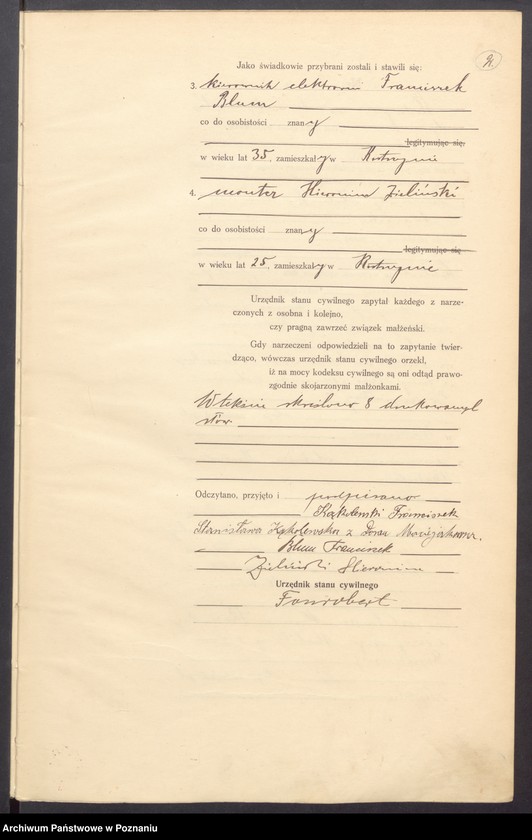 2.
Jako świadkowie przybrani zostali i stawili się:
3. kierownik elektrowni Franciszek
Blum
co do osobistości znany
legitymując się,
w wieku lat 35, zamieszkały w Kostrzynie
4. monter Hieronim Zieliński
co do osobistości znany
legitymując się
w wieku lat 25, zamieszkały w Kostrzynie
Urzędnik stanu cywilnego zapytał każdego z narze-
czonych z osobna i kolejno,
czy pragną zawrzeć związek małżeński.
Gdy narzeczeni odpowiedzieli na to zapytanie twier-
dząco, wówczas urzędnik stanu cywilnego orzekł,
iż na mocy kodeksu cywilnego są oni odtąd prawo-
zgodnie skojarzonymi małżonkami.
W tekście skreślono 8 drukowanych
słów.
Odczytano, przyjęto i podpisano
Kąkolewski Franciszek
Stanisława Kąkolewska z domu
Blum Franciszek
Zieliński Hieronim
Urzędnik stanu cywilnego
Fonrobert
Archiwum Państwowe w Poznaniu